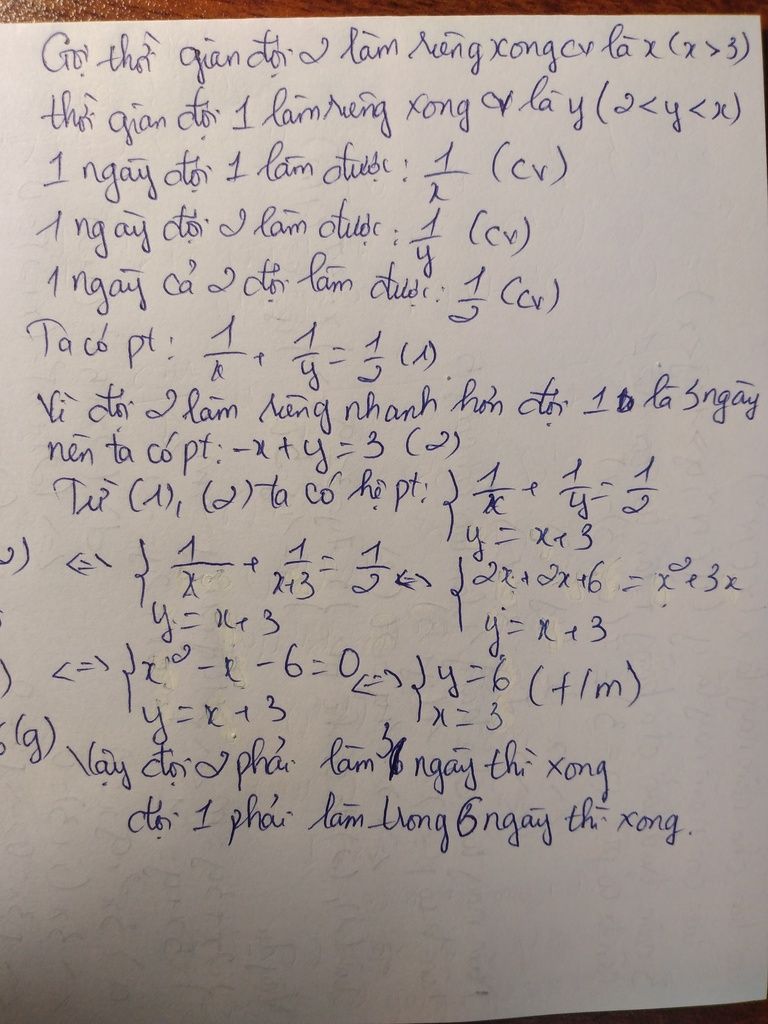 Gọi thời gian đội 2 làm riêng xong cv là x (x > 3)
thời gian đội 1 làm riêng xong cv là y (2 < y < x)
1 ngày đội 1 làm được: 1/x (cv)
1 ngày đội 2 làm được: 1/y (cv)
1 ngày cả 2 đội làm được: 1/2 (cv)
Ta có pt: 1/x + 1/y = 1/2 (1)
Vì đội 2 làm riêng nhanh hơn đội 1 là 3 ngày
nên ta có pt: -x + y = 3 (2)
Từ (1), (2) ta có hệ pt: { 1/x + 1/y = 1/2
y = x + 3
<=> { 1/x + 1/x+3 = 1/2 <=> { 2x + 2x + 6 = x² + 3x
y = x + 3 y = x + 3
<=> { x² - x - 6 = 0 <=> { y = 6 (t/m)
y = x + 3 x = 3
(g) Vậy đội 2 phải làm 3 ngày thì xong
đội 1 phải làm trong 6 ngày thì xong.